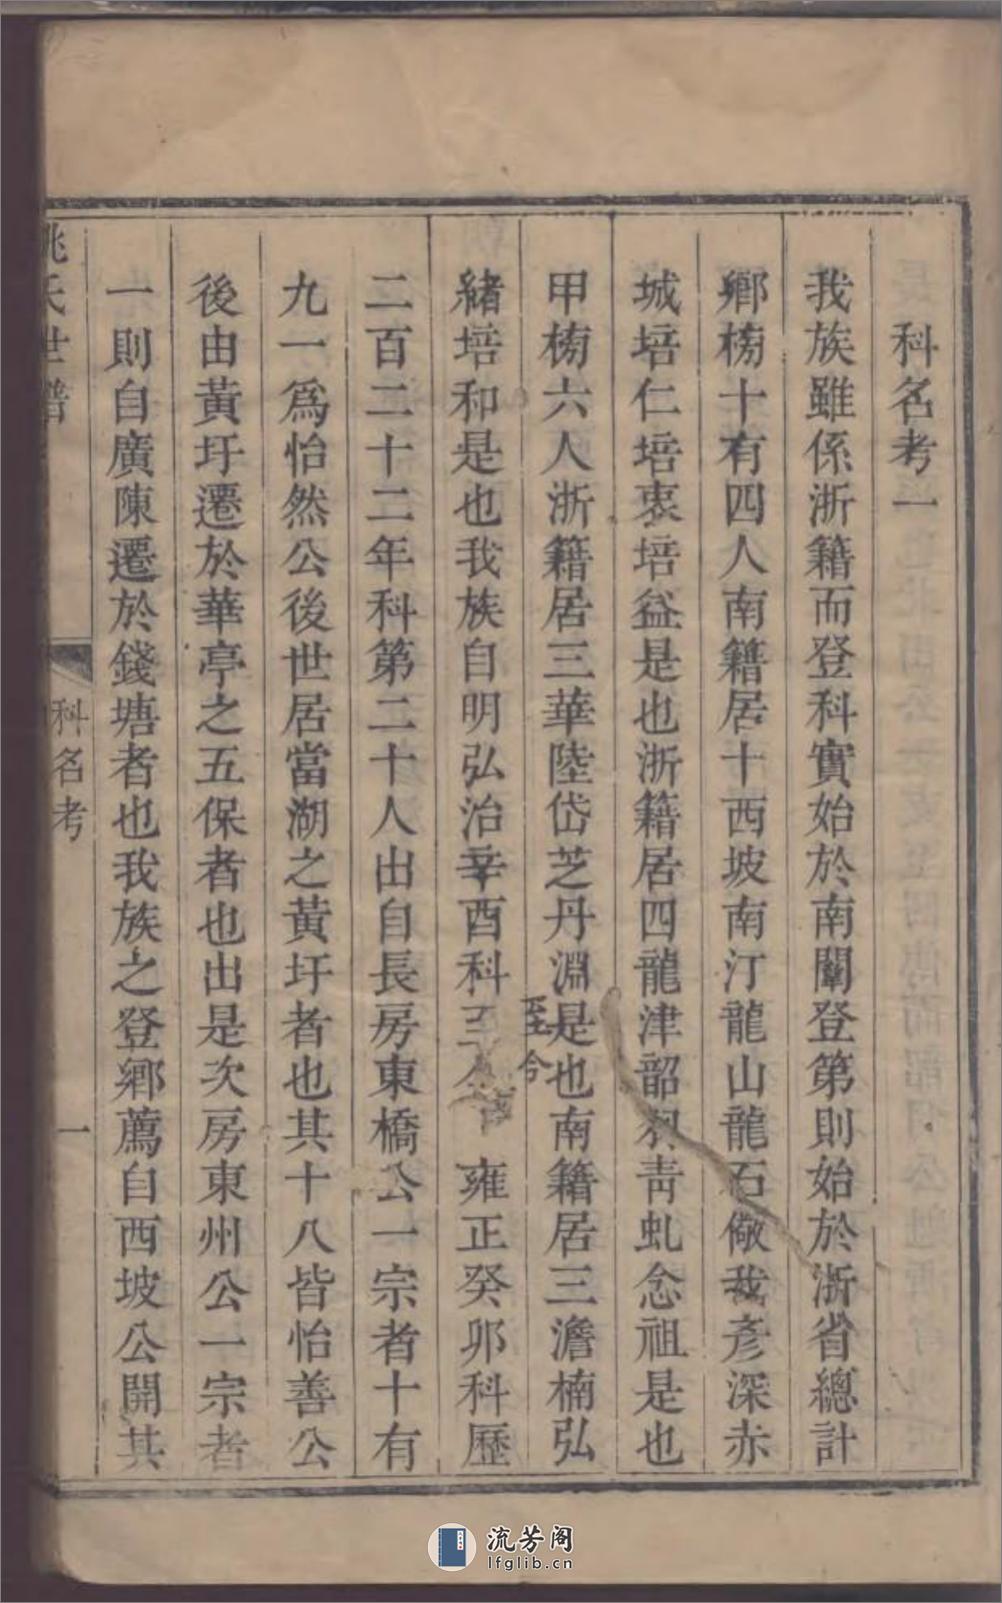 科名考一
我族雖係浙籍而登科實始於南闈登第則始於浙省總計
鄉榜十有四人南籍居十西坡南汀龍山龍石儆我彥深赤
城培仁培衷培益是也浙籍居四龍津韶羽靑虬念祖是也
甲榜六人浙籍居三華陸岱芝丹淵是也南籍居三澹楠弘
緒培和是也我族自明弘治辛酉科至今雍正癸卯科歷
二百二十二年科第二十人出自長房東橋公一宗者十有
九一爲怡然公後世居當湖之黃圩者也其十八皆怡善公
後由黃圩遷於華亭之五保者也出是次房東州公一宗者
一則自廣陳遷於錢塘者也我族之登鄉薦自西坡公開其
姚氏世譜
科名考
一
流芳阁
lfglib.cn